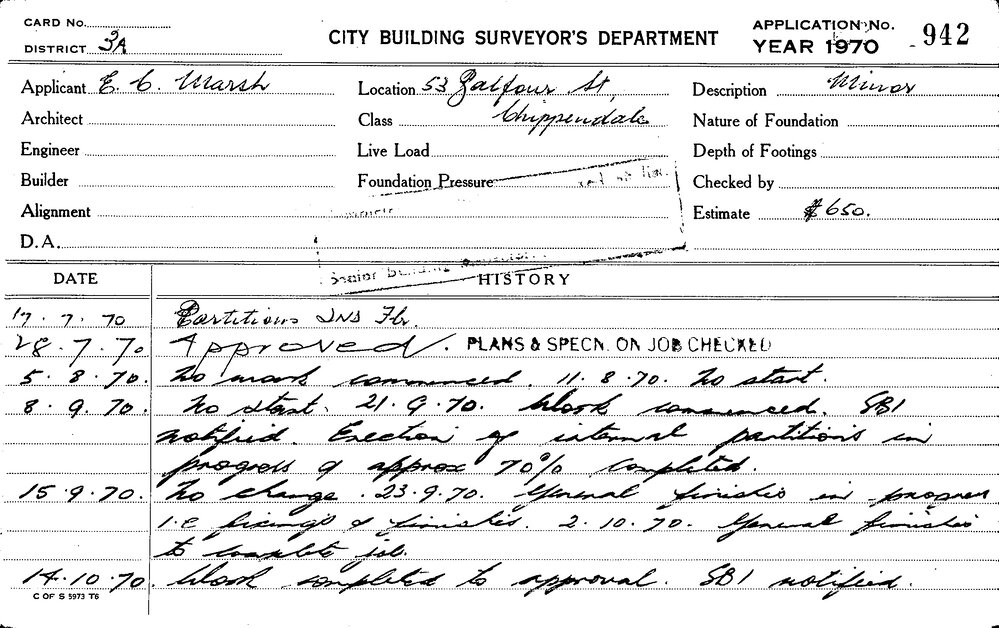 CARD No.
DISTRICT 3A
CITY BUILDING SURVEYOR'S DEPARTMENT
APPLICATION No. 942
YEAR 1970
Applicant E. C. Marsh
Location 53 Balfour St,
Description Minor
Architect
Class Chippendale
Nature of Foundation
Engineer
Live Load
Depth of Footings
Builder
Foundation Pressure
Checked by
Alignment
Estimate $650.
D.A.
Senior Building
DATE HISTORY
17.7.70 Partitions 2nd Flr.
28.7.70 Approved. PLANS & SPECN. ON JOB CHECKED
5.8.70. No work commenced. 11.8.70. No start.
8.9.70. No start. 21.9.70. Work commenced. SBI
notified. Erection of internal partitions in
progress & approx 70% completed.
15.9.70. No change. 23.9.70. General finishes in progress
i.e. fixings & finishes. 2.10.70. General finishes
to complete job.
14.10.70. Work completed to approval. SBI notified.
C OF S 5973 T6